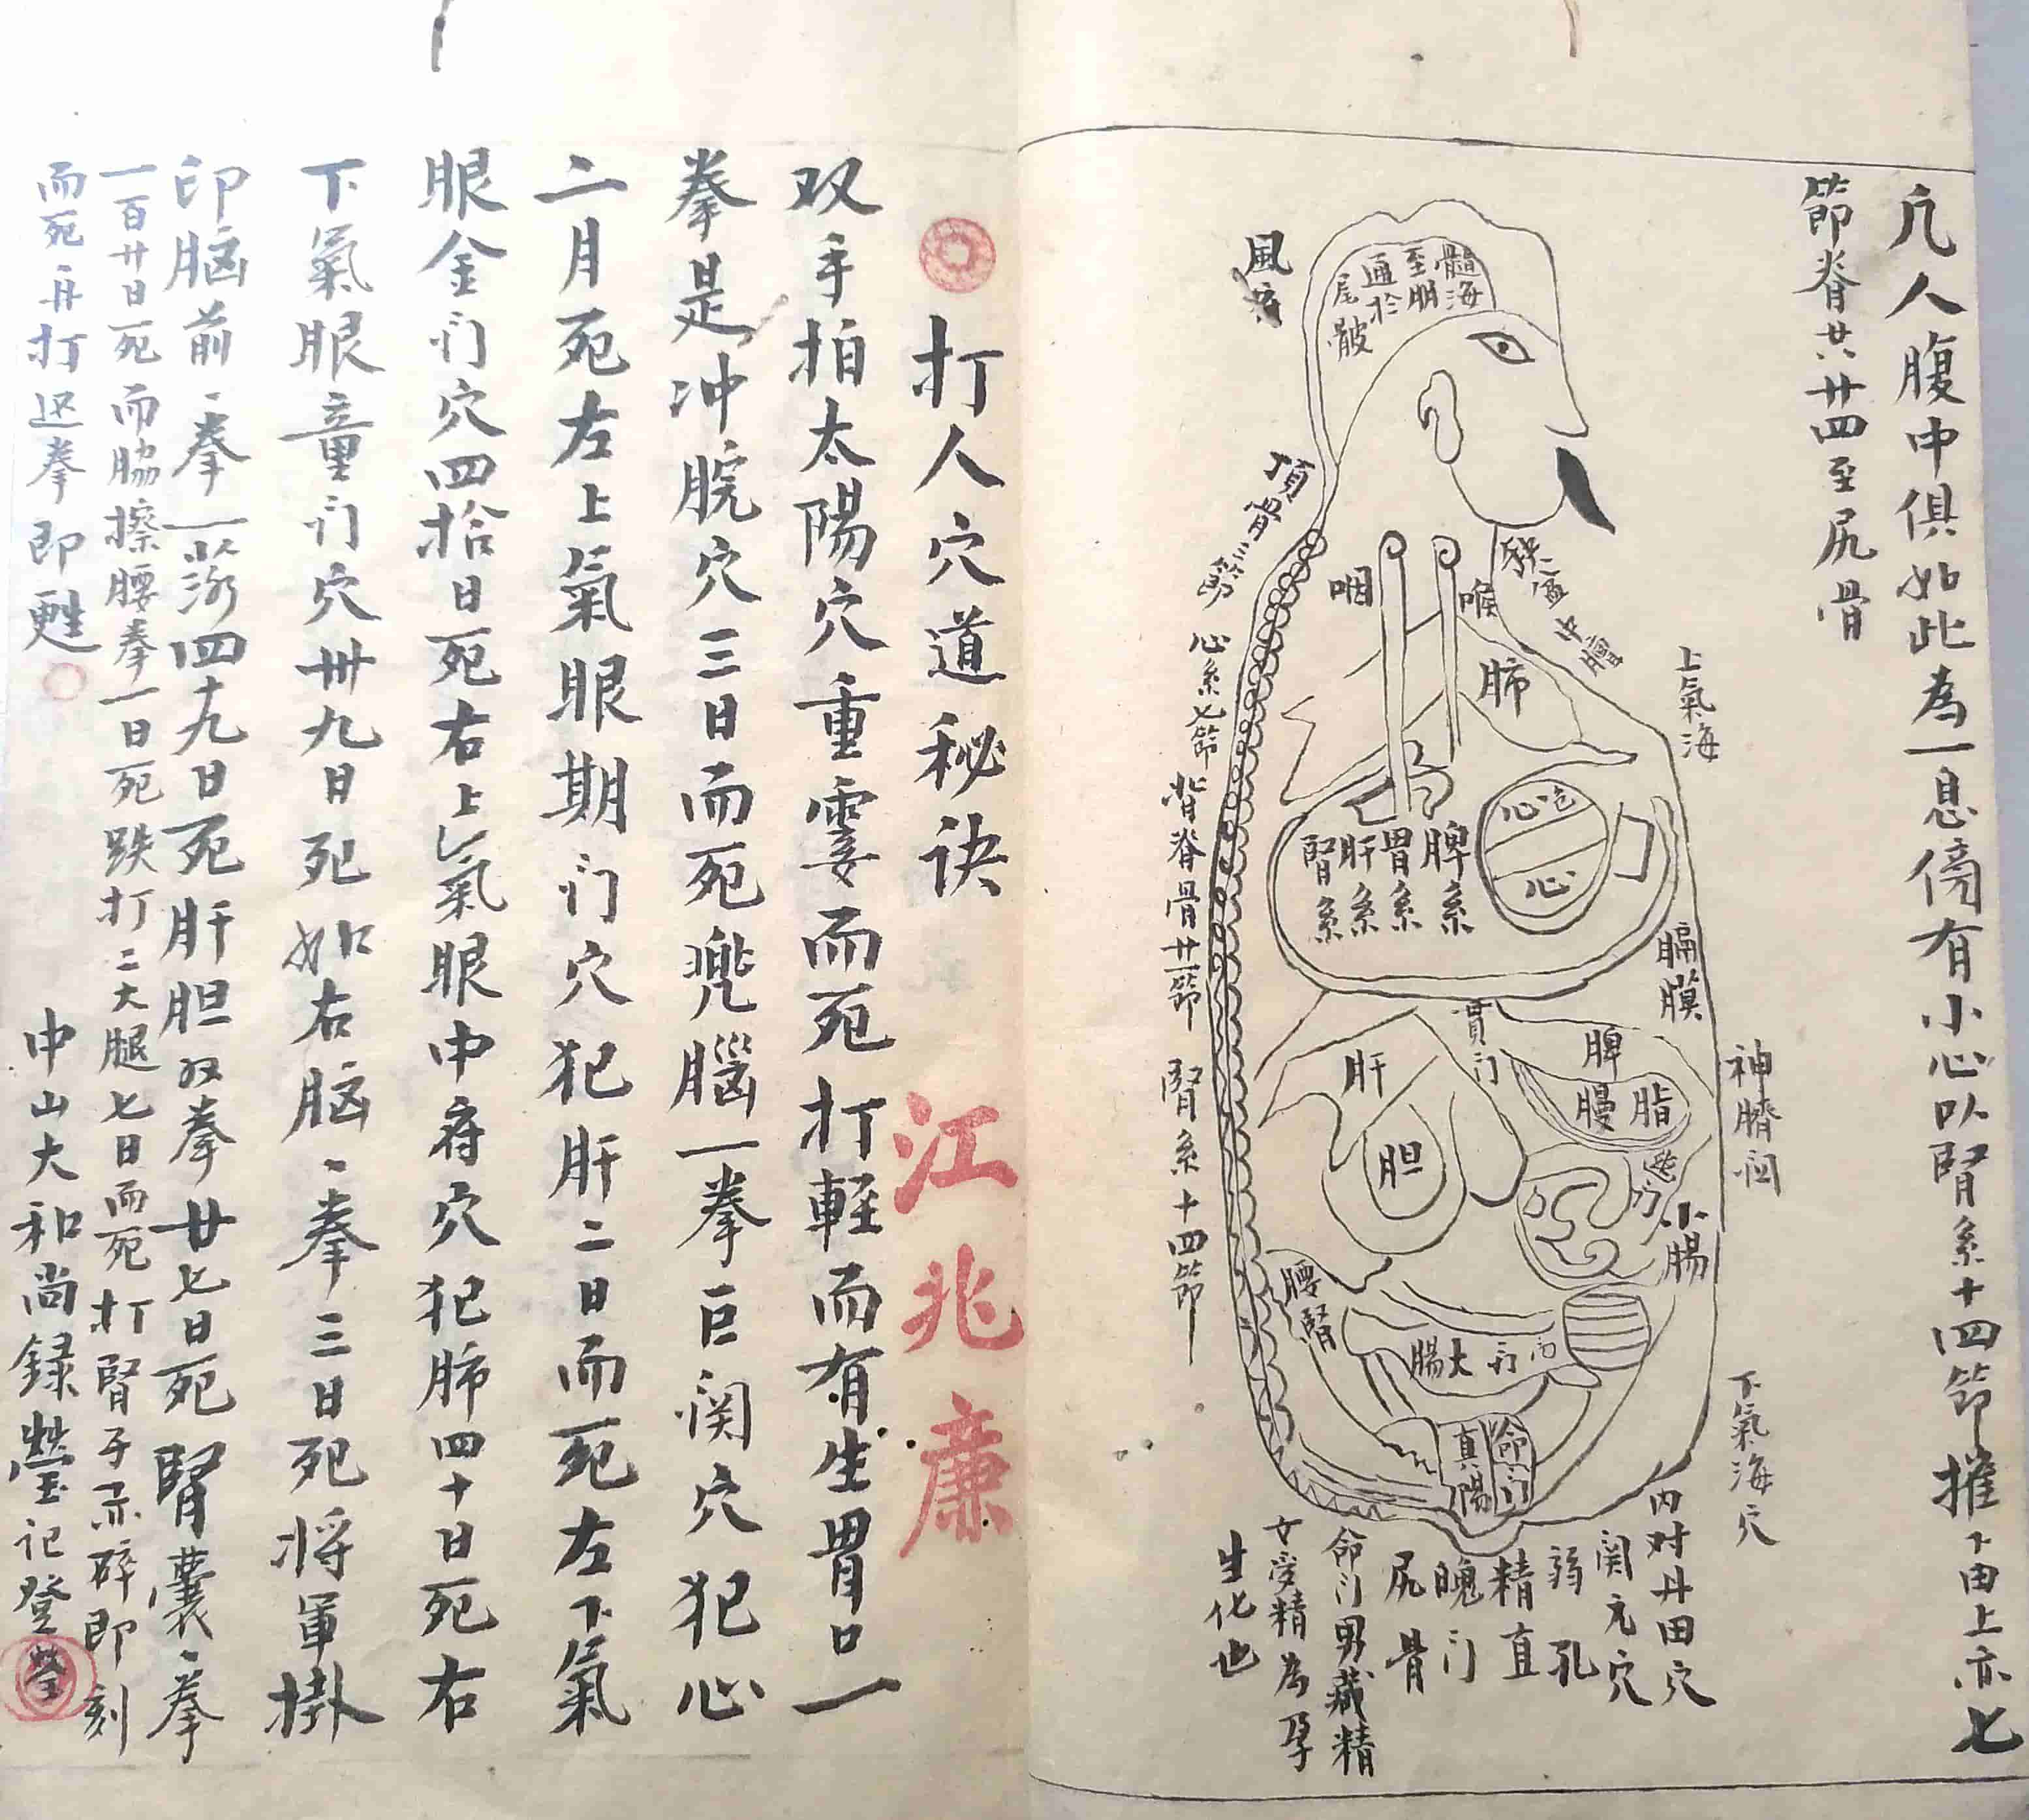 凢人腹中俱如此為一息傍有小心以腎系十四節摧下由上亦七
節脊共廿四至尻骨
髓海
至腘
通於
尾骰
風府
頂骨三節
咽
喉
缺盆
中膻
肺
上氣海
心系七節
背脊骨廿一節
腎系十四節
心包
心
脾系
胃系
肝系
腎系
膈膜
賁门
肝
胆
脾
脂膜
神臍
小腸
腰腎
大腸
下氣海穴
命门
真陽
内对丹田穴
関元穴
孔
精直
魄门
尻骨
命门男藏精
女受精為孕
生化也
打人穴道秘诀
江兆廉
双手拍太陽穴重霎而死打軽而有生胃口一
拳是冲脘穴三日而死兠腦一拳巨阙穴犯心
二月死左上氣眼期门穴犯肝二日而死左下氣
眼金门穴四拾日死右上氣眼中府穴犯肺四十日死右
下氣眼章门穴卅九日死如右脑、拳三日死将軍掛
印脑前、拳一 四十九日死肝胆双拳廿七日死腎囊、拳
一百廿日死而脇擦腰拳一日死跌打二大腿七日而死打腎子亦碎即刻
而死再打迟拳即甦
中山大和尚録瑩记登瑩